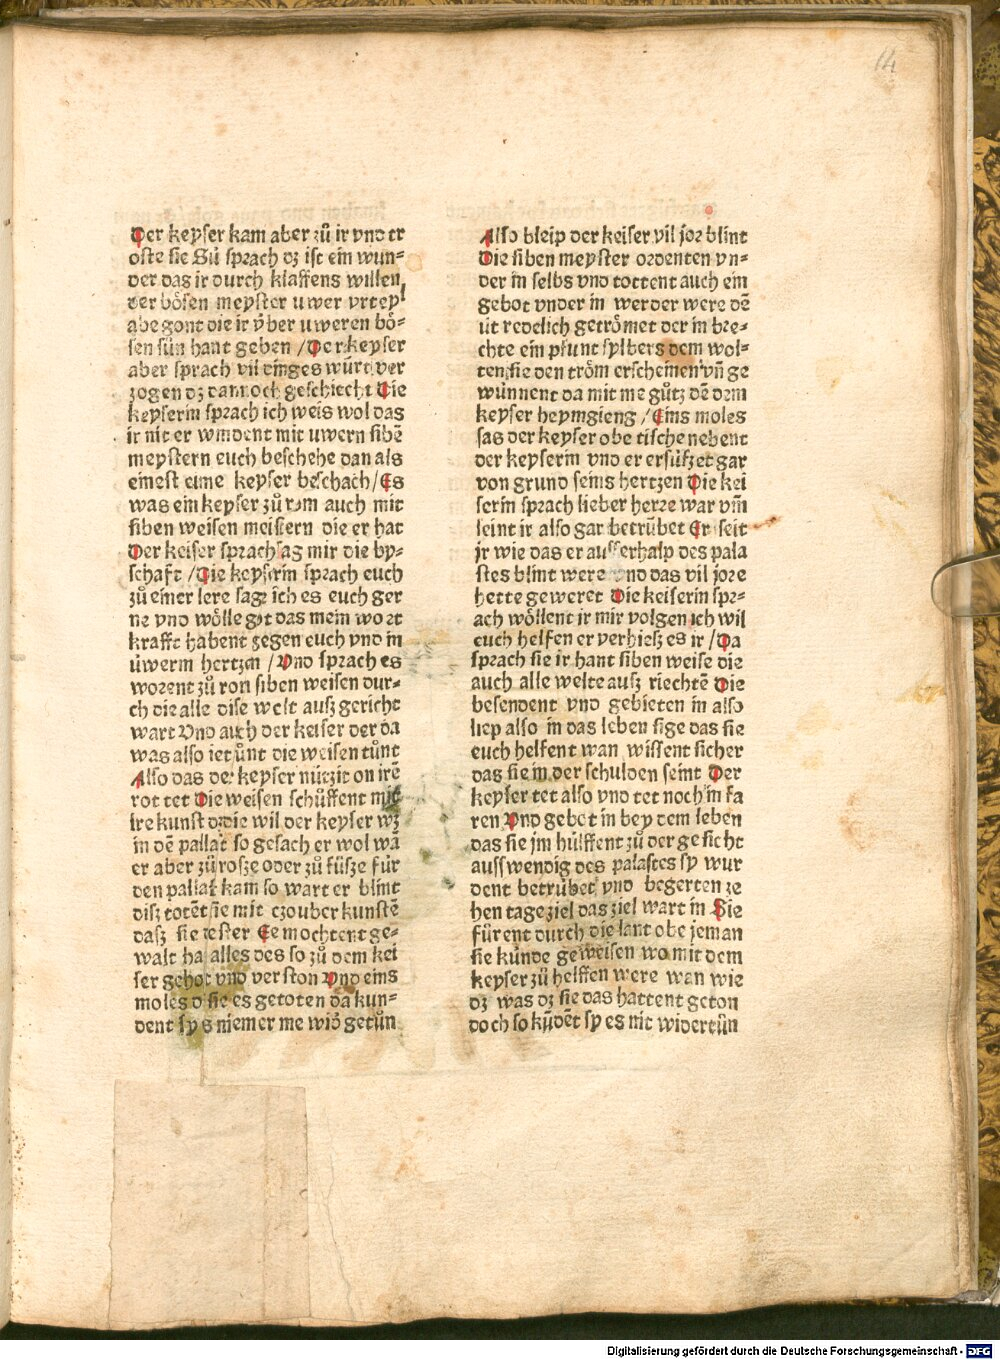 14
Der keyser kam aber zů ir vnd tr
oste sie Sü sprach dz ist ein wun⸗
der das ir durch klaffens willen
der bösen meyster uwer vrteyl
abegont die ir v̈ber uweren bö⸗
sen sün hant geben / Der keyser
aber sprach vil dinges würt ver
zogen dz dannoch geschiecht Die
keyserin sprach ich weis wol das
ir nit er windent mit uwern sibē
meystern euch beschehe dan als
einest eime keyser beschach / Es
was ein keyser zů rom auch mit
siben weisen meistern die er hat
Der keiser sprach sag mir die by⸗
schaft / Die keyserin sprach euch
zů einer lere sage ich es euch ger
ne vnd wölle got das mein wort
krafft habent gegen euch vnd in
üwerm hertzen / Vnd sprach es
worent zů rom siben weisen dur⸗
ch die alle dise welt ausz gericht
wart Vnd auch der keiser der da
was also ietzünt die weisen tünt
Also das der keyser nützit on irē
rot tet Die weisen schüffent mit
ire kunst dz die wil der keyser wz
in dē pallat so gesach er wol wā
er aber zů rosze oder zů füsze für
den pallat kam so wart er blint
disz totēt sie mit czouber kunstē
dasz sie dester Ee mochtent ge⸗
walt ha alles des so zů dem kei
ser gehot vnd verston Vnd eins
moles d sie es getoten da kun⸗
dent sy s niemer me wid getůn
Also bleip der keiser vil jor blint
Die siben meyster ordenten vn⸗
der in selbs vnd tottent auch ein
gebot vnder in wer der were dē
üt redelich getrömet der in bre⸗
chte ein pfunt sylbers dem wol⸗
ten sie den tröm erscheinen vn̄ ge
wünnent da mit me gůtz dē dem
keyser heymgieng / Eins moles
sas der keyser obe tische nebent
der keyserin vnd er ersüfzet gar
von grund seins hertzen Die kei
serin sprach lieber herre war vm̄
seint ir also gar betrübet Er seit
jr wie das er ausserhalp des pala
stes blint were vnd das vil jore
hette geweret Die keiserin spr⸗
ach wöllent ir mir volgen ich wil
euch helfen er verhiesz es ir / Da
sprach sie ir hant siben weise die
auch alle welte ausz riechtē Die
besendent vnd gebieten in also
liep also in das leben sige das sie
euch helfent wan wissent sicher
das sie in der schulden seint Der
keyser tet also vnd tet noch in fa
ren Vnd gebot in bey dem leben
das sie jm hülffent zů der gesicht
ausswendig des palastes sy wur
dent betrübet vnd begerten ze
hen tage ziel das ziel wart in Sie
fürent durch die lant obe jeman
sie künde geweisen wo mit dem
keyser zů helffen were wan wie
dz was dz sie das hattent geton
doch so kůdēt sy es nit widertůn
Digitalisierung gefördert durch die Deutsche Forschungsgemeinschaft - DFG